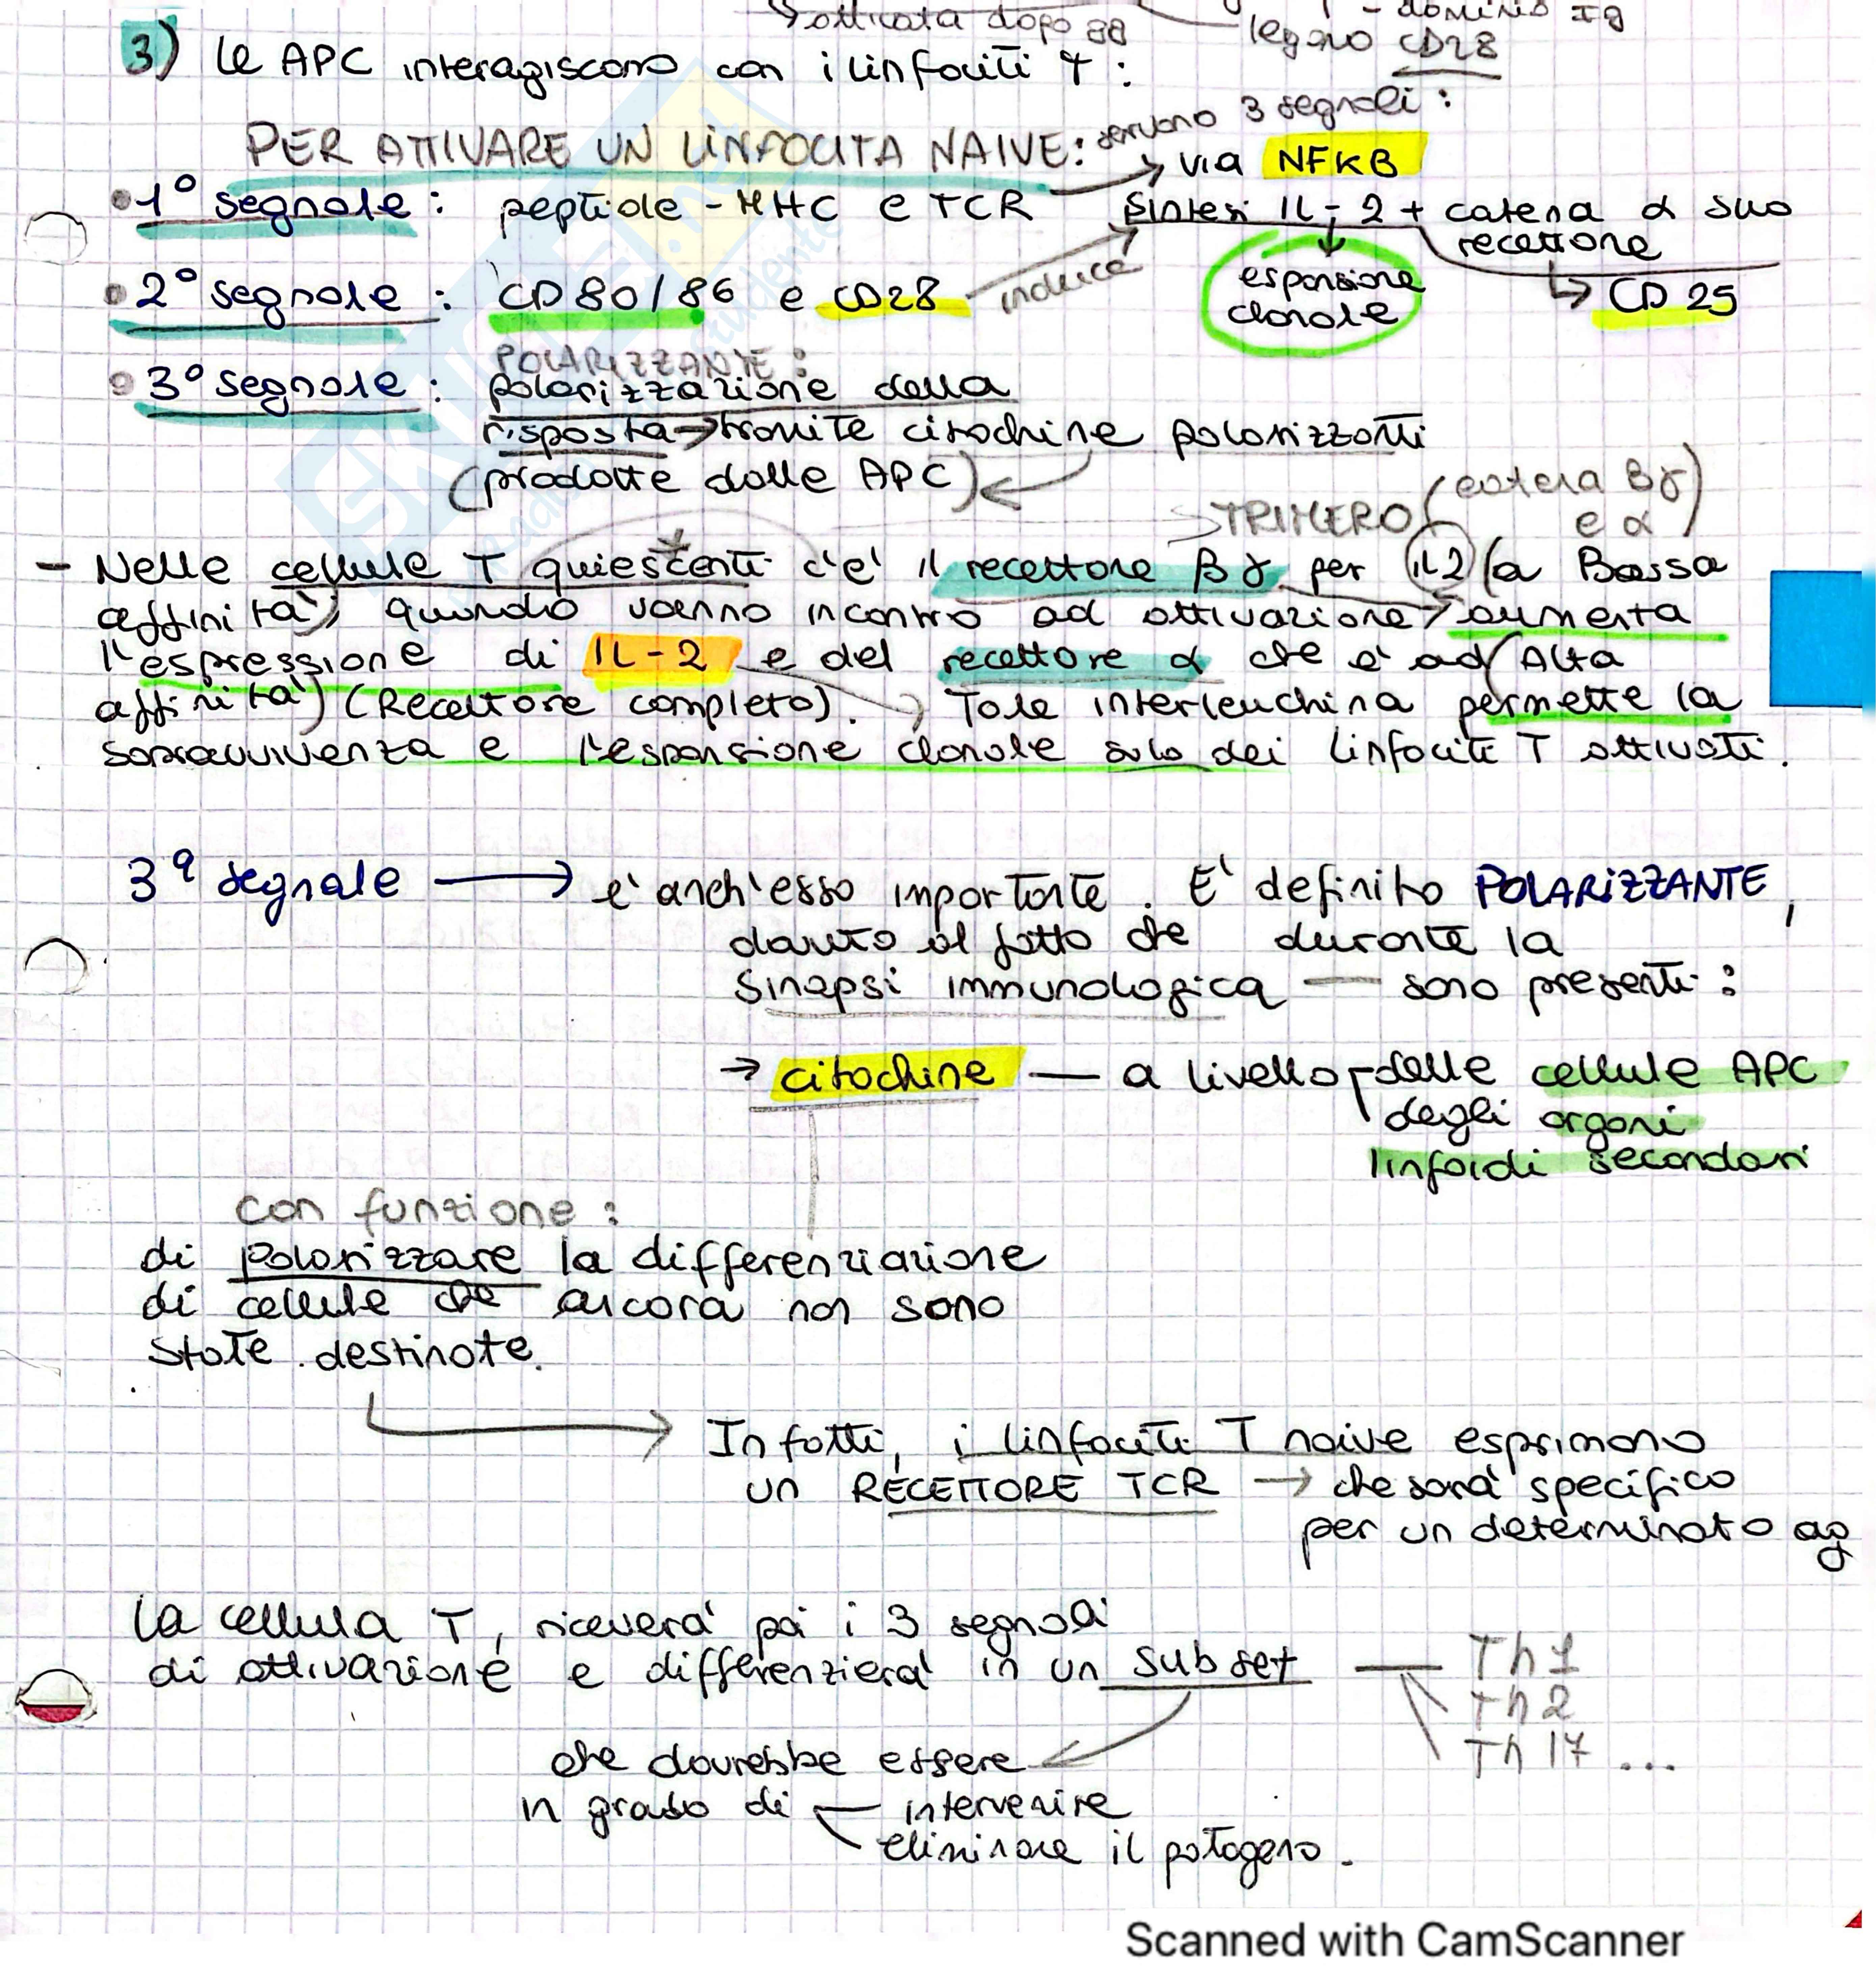 - dominio Ig
legano CD28
3) Le APC interagiscono con i linfociti T :
PER ATTIVARE UN LINFOCITA NAIVE: servono 3 segnali :
via NFKB
• 1° segnale : peptide - MHC e TCR
sintesi IL-2 + catena α suo
recettore
CD 25
espansione
clonale
• 2° segnale : CD 80/86 e CD28
induce
• 3° segnale : POLARIZZANTE :
polarizzazione della
risposta → tramite citochine polarizzanti
(prodotte dalle APC)
TRIMERO (catena βγ
e α)
- Nelle cellule T quiescenti c'e' il recettore βγ per IL2 (a Bassa
affinità), quando vanno incontro ad attivazione → aumenta
l'espressione di IL-2 e del recettore α che e' ad (Alta
affinità) (Recettore completo). Tale interleuchina permette la
sopravvivenza e l'espansione clonale solo dei linfociti T attivati.
3° segnale → e' anch'esso importante. E' definito POLARIZZANTE,
dovuto al fatto che durante la
sinapsi immunologica — sono presenti :
→ citochine — a livello delle cellule APC
degli organi
linfoidi secondari
con funzione :
di polarizzare la differenziazione
di cellule che ancora non sono
state destinate.
Infatti, i linfociti T naive esprimono
un RECETTORE TCR → che sarà specifico
per un determinato ag
La cellula T, riceverà poi i 3 segnali
di attivazione e differenzierà in un subset — Th1
Th2
Th 17 ...
che dovrebbe essere
in grado di — intervenire
eliminare il patogeno.
Scanned with CamScanner